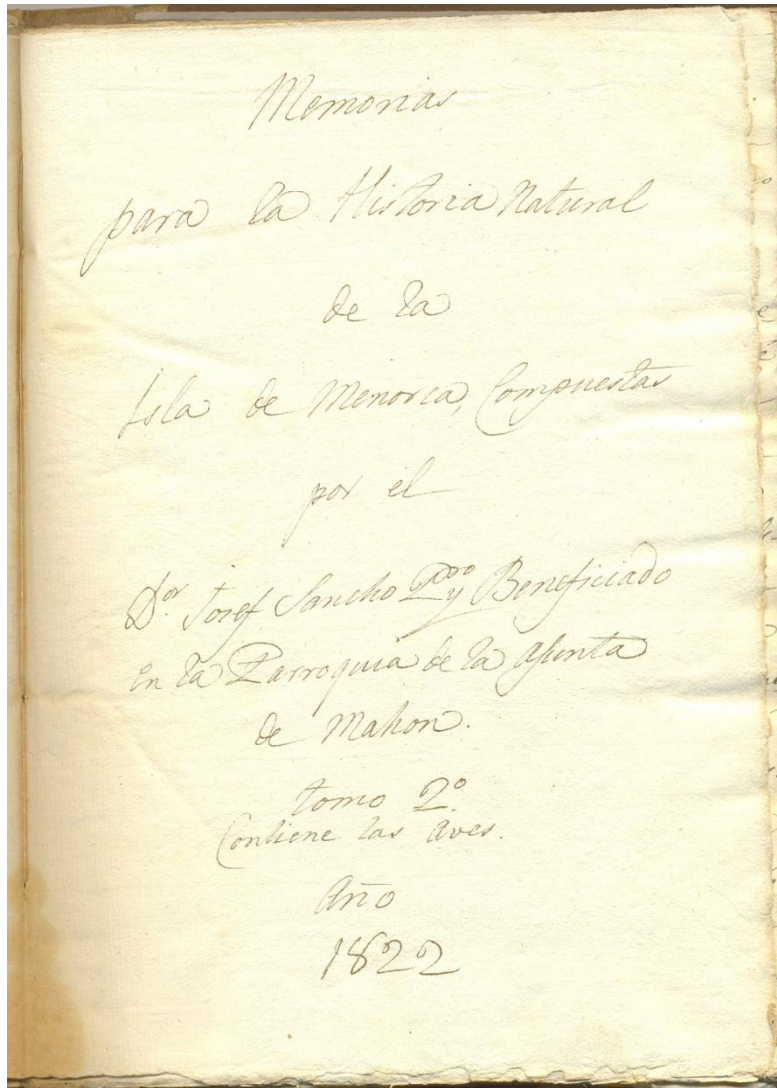 Memorias
para la Historia Natural
de la
Isla de Menorca, Compuestas
por el
Dor Josef Sancho Pbro y Beneficiado
en la Parroquia de la Asunta
de Mahon.
tomo 2º.
Contiene las Aves.
Año
1822